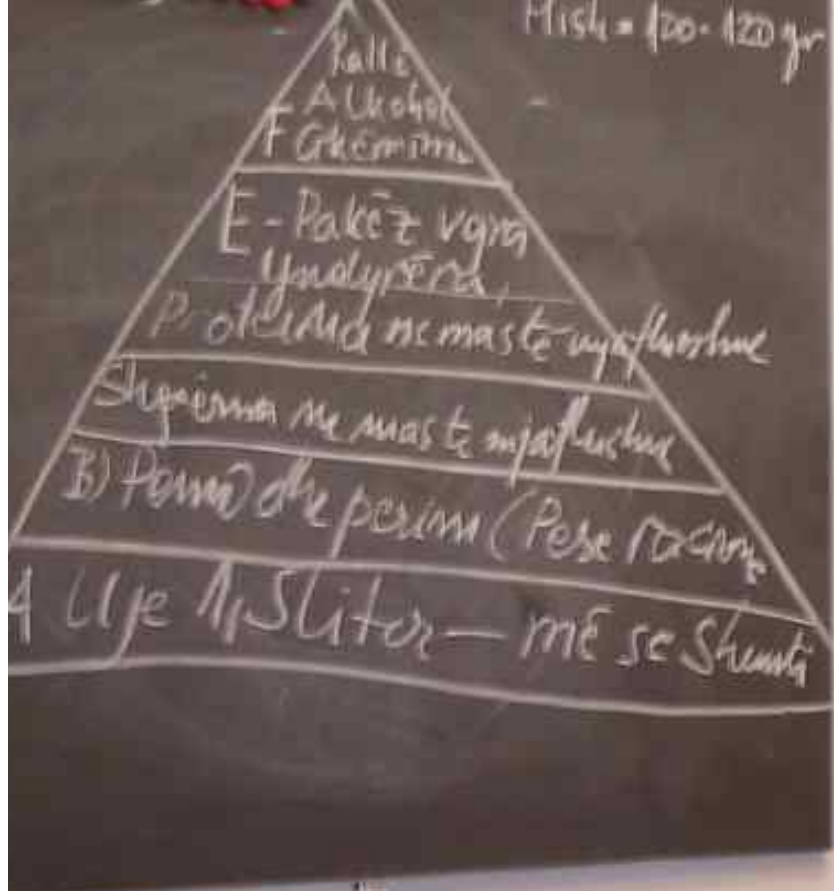 Mish = 100 - 120 gr
Rallë
Alkohol
F Gkëmime
E - Pakëz vajra
Yndyrëra,
Proteina në mastë mjaftueshme
Shqerma në mastë mjaftueshme
B) Pema dhe perime (Pese racione
A Uje 1,5 litër — më se shumti